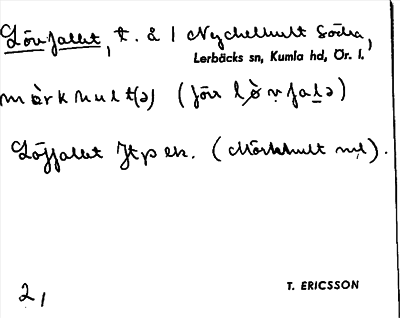 Lövfallet, t. å 1 Nyckelhult Södra,
Lerbäcks sn, Kumla hd, Ör. l.
mòrkhult(ə) (förr lòvfalə)
Löffallet Jtp ek. (Mörkhult nu).
2,
T. ERICSSON